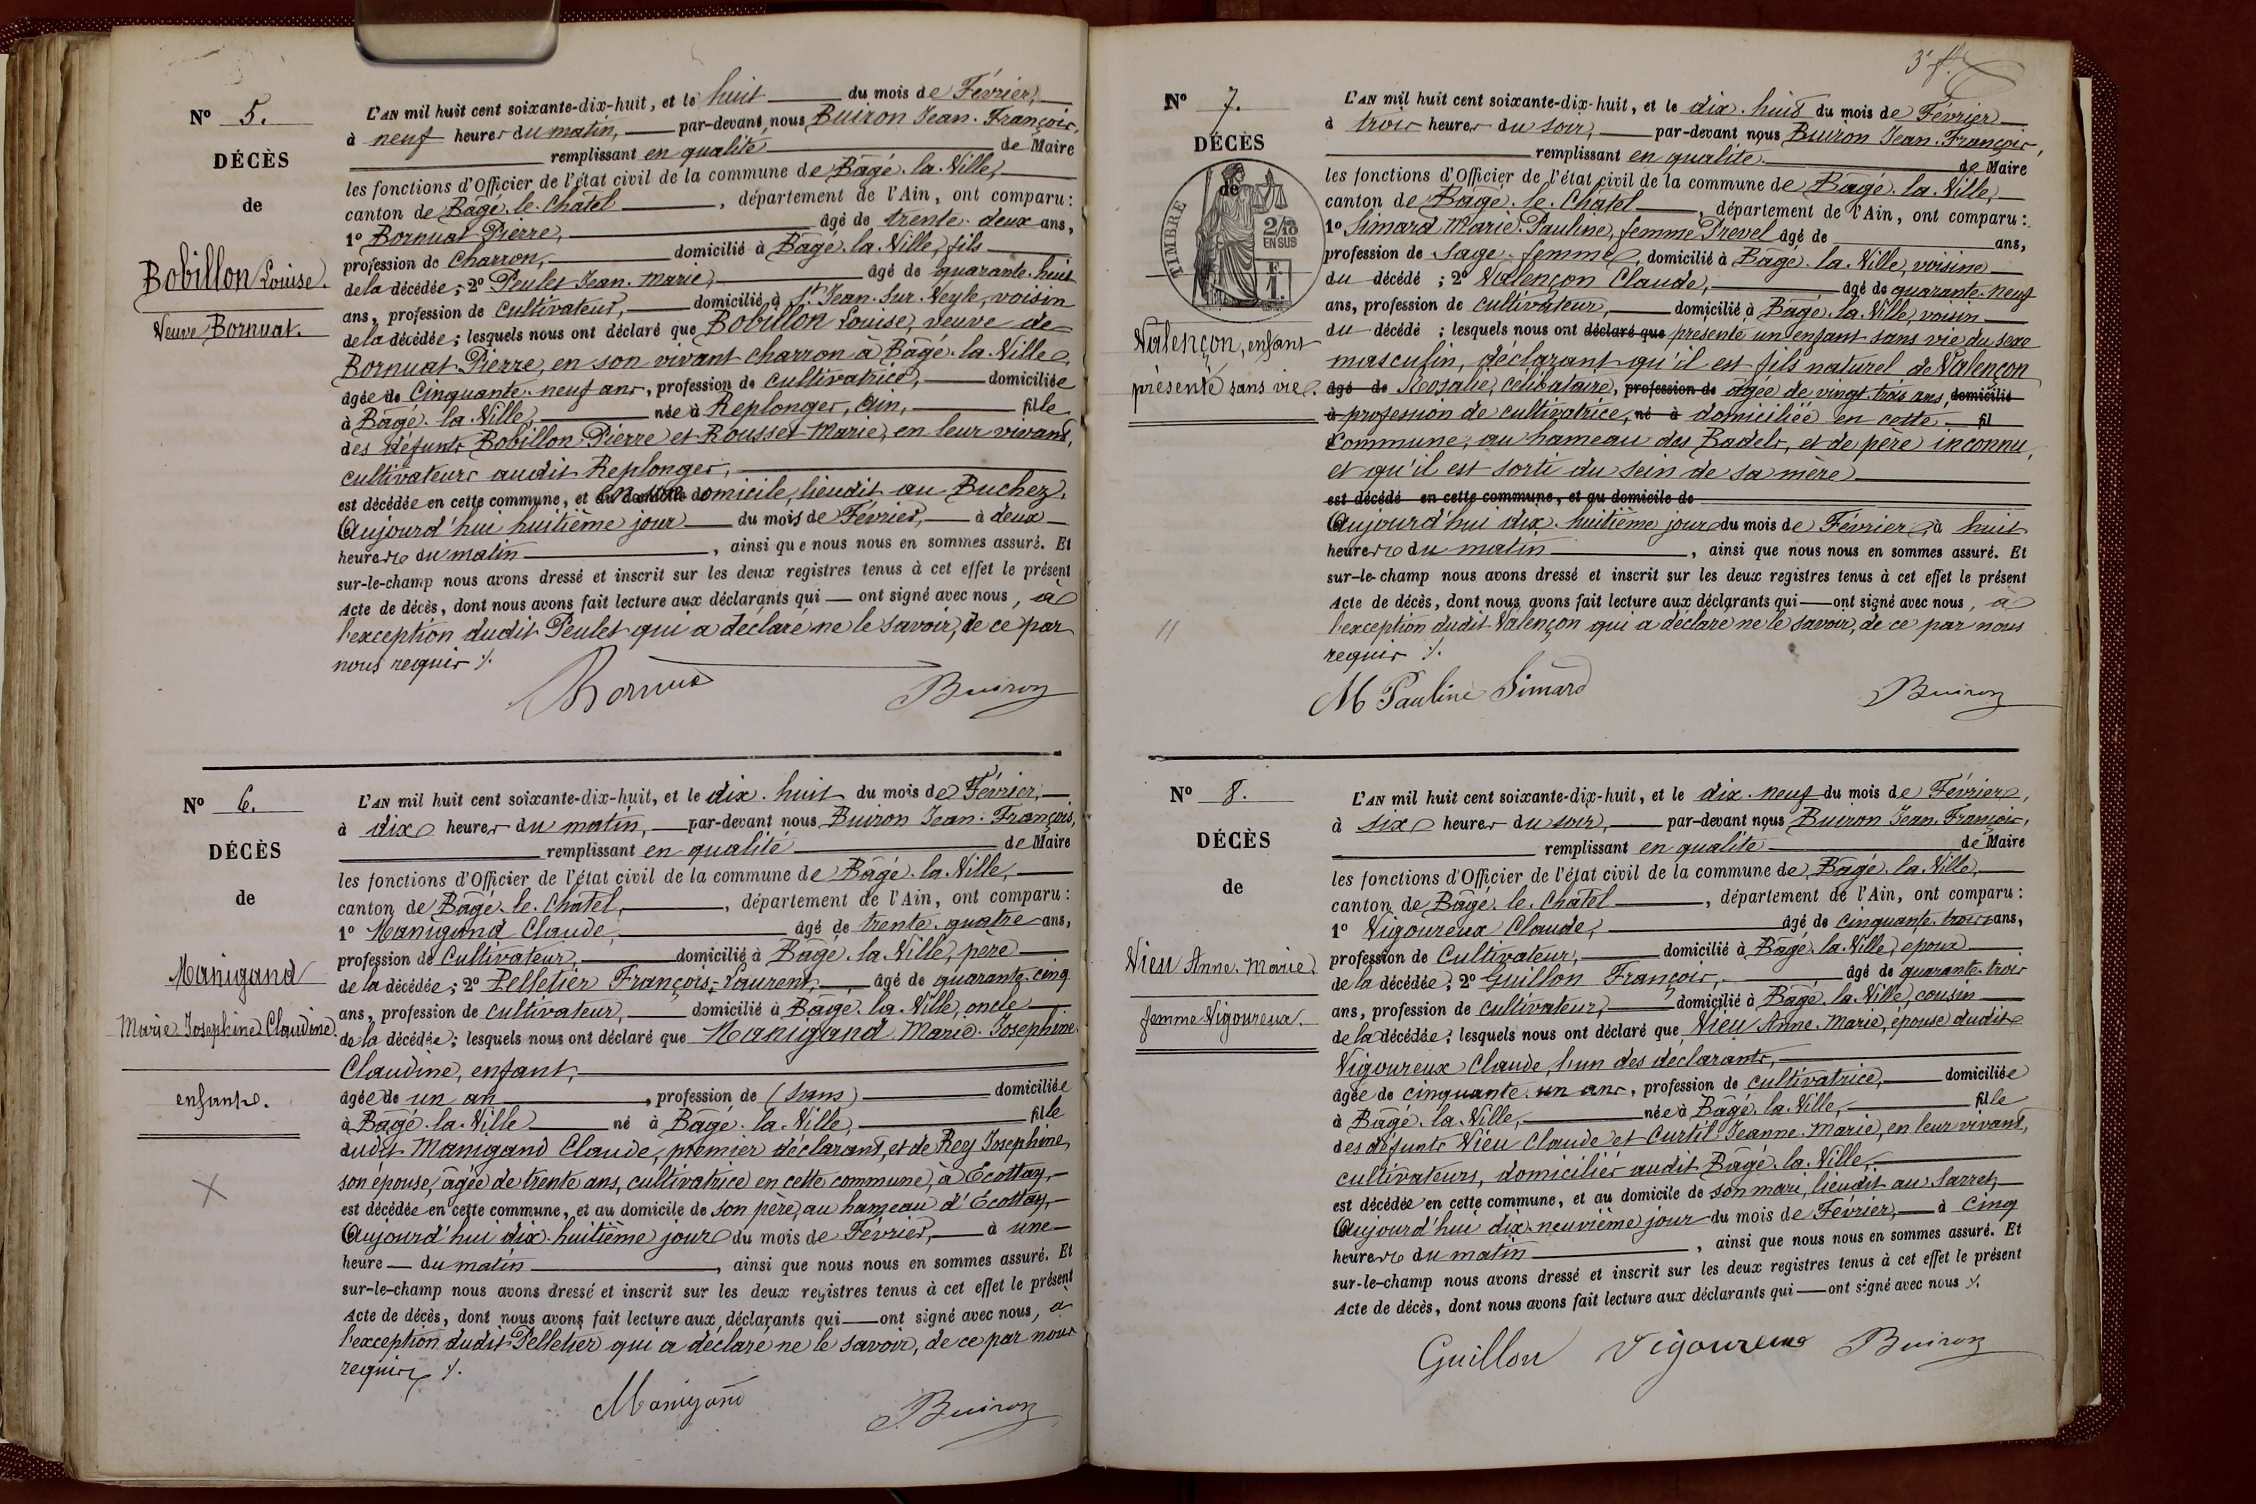 N° 5.
DÉCÈS
de
Bobillon Louise.
Veuve Bornuat.
L'AN mil huit cent soixante-dix-huit, et le huit du mois de Février,
à neuf heures du matin, par-devant nous Buiron Jean-François,
remplissant en qualité de Maire
les fonctions d'Officier de l'état civil de la commune de Bâgé-la-Ville,
canton de Bâgé-le-Châtel, département de l'Ain, ont comparu :
1° Bornuat Pierre, âgé de trente-deux ans,
profession de charron, domicilié à Bâgé-la-Ville, fils
de la décédée ; 2° Peulet Jean-Marie, âgé de quarante-huit
ans, profession de cultivateur, domicilié à St Jean-sur-Veyle, voisin
de la décédée ; lesquels nous ont déclaré que Bobillon Louise, veuve de
Bornuat Pierre, en son vivant charron à Bâgé-la-Ville,
âgée de cinquante-neuf ans, profession de cultivatrice, domiciliée
à Bâgé-la-Ville née à Replonges, Ain, fille
des défunts Bobillon Pierre et Rousset Marie, en leur vivant,
cultivateurs audit Replonges,
est décédée en cette commune, et au domicile de en son domicile, lieudit au Buchez,
Aujourd'hui huitième jour du mois de Février, à deux
heures du matin, ainsi que nous nous en sommes assuré. Et
sur-le-champ nous avons dressé et inscrit sur les deux registres tenus à cet effet le présent
Acte de décès, dont nous avons fait lecture aux déclarants qui ont signé avec nous, à
l'exception dudit Peulet qui a déclaré ne le savoir, de ce par
nous requis ./.
Bornua Buiron
N° 6.
DÉCÈS
de
Manigand
Marie Josephine Claudine.
enfant.
L'AN mil huit cent soixante-dix-huit, et le dix-huit du mois de Février,
à dix heures du matin, par-devant nous Buiron Jean-François,
remplissant en qualité de Maire
les fonctions d'Officier de l'état civil de la commune de Bâgé-la-Ville,
canton de Bâgé-le-Châtel, département de l'Ain, ont comparu :
1° Manigand Claude, âgé de trente-quatre ans,
profession de cultivateur, domicilié à Bâgé-la-Ville, père
de la décédée ; 2° Pelletier François-Laurent, âgé de quarante-cinq
ans, profession de cultivateur, domicilié à Bâgé-la-Ville, oncle
de la décédée ; lesquels nous ont déclaré que Manigand Marie-Josephine
Claudine, enfant,
âgée de un an, profession de (sans) domiciliée
à Bâgé-la-Ville né à Bâgé-la-Ville, fille
dudit Manigand Claude, premier déclarant, et de Rey Josephine
son épouse, âgée de trente ans, cultivatrice en cette commune, à Ecottay,
est décédée en cette commune, et au domicile de son père, au hameau d'Ecottay,
Aujourd'hui dix-huitième jour du mois de Février, à une
heure du matin, ainsi que nous nous en sommes assuré. Et
sur-le-champ nous avons dressé et inscrit sur les deux registres tenus à cet effet le présent
Acte de décès, dont nous avons fait lecture aux déclarants qui ont signé avec nous, à
l'exception dudit Pelletier qui a déclaré ne le savoir, de ce par nous
requis ./.
Manigand Buiron
3e f.
N° 7.
DÉCÈS
de
TIMBRE
2/10
EN SUS
Valençon, enfant
présenté sans vie.
11
L'AN mil huit cent soixante-dix-huit, et le dix-huit du mois de Février
à trois heures du soir, par-devant nous Buiron Jean-François,
remplissant en qualité de Maire
les fonctions d'Officier de l'état civil de la commune de Bâgé-la-Ville,
canton de Bâgé-le-Châtel, département de l'Ain, ont comparu :
1° Simard Marie-Pauline, femme Prevel âgé de ans,
profession de sage-femme, domicilié à Bâgé-la-Ville, voisine
du décédé ; 2° Valençon Claude, âgé de quarante-neuf
ans, profession de cultivateur, domicilié à Bâgé-la-Ville, voisin
du décédé ; lesquels nous ont déclaré que présenté un enfant sans vie du sexe
masculin, déclarant qu'il est fils naturel de Valençon
âgé de Rosalie, célibataire, profession de âgée de vingt-trois ans, domicilié
à profession de cultivatrice, né à domiciliée en cette fil
commune, au hameau des Badels, et de père inconnu,
et qu'il est sorti du sein de sa mère
est décédé en cette commune, et au domicile de
Aujourd'hui dix-huitième jour du mois de Février, à huit
heures du matin, ainsi que nous nous en sommes assuré. Et
sur-le-champ nous avons dressé et inscrit sur les deux registres tenus à cet effet le présent
Acte de décès, dont nous avons fait lecture aux déclarants qui ont signé avec nous, à
l'exception dudit Valençon qui a déclaré ne le savoir, de ce par nous
requis ./.
M Pauline Simard Buiron
N° 8.
DÉCÈS
de
Vieu Anne-Marie,
femme Vigoureux.
L'AN mil huit cent soixante-dix-huit, et le dix-neuf du mois de Février,
à six heures du soir, par-devant nous Buiron Jean-François,
remplissant en qualité de Maire
les fonctions d'Officier de l'état civil de la commune de Bâgé-la-Ville,
canton de Bâgé-le-Châtel, département de l'Ain, ont comparu :
1° Vigoureux Claude, âgé de cinquante-trois ans,
profession de cultivateur, domicilié à Bâgé-la-Ville, époux
de la décédée ; 2° Guillon François, âgé de quarante-trois
ans, profession de cultivateur, domicilié à Bâgé-la-Ville, cousin
de la décédée ; lesquels nous ont déclaré que Vieu Anne-Marie, épouse dudit
Vigoureux Claude, l'un des déclarants,
âgée de cinquante-un ans, profession de cultivatrice, domiciliée
à Bâgé-la-Ville, née à Bâgé-la-Ville, fille
des défunts Vieu Claude et Curtil Jeanne-Marie, en leur vivant,
cultivateurs, domiciliés audit Bâgé-la-Ville,
est décédée en cette commune, et au domicile de son mari, lieudit au Sarret,
Aujourd'hui dix-neuvième jour du mois de Février, à cinq
heures du matin, ainsi que nous nous en sommes assuré. Et
sur-le-champ nous avons dressé et inscrit sur les deux registres tenus à cet effet le présent
Acte de décès, dont nous avons fait lecture aux déclarants qui ont signé avec nous ./.
Guillon Vigoureux Buiron